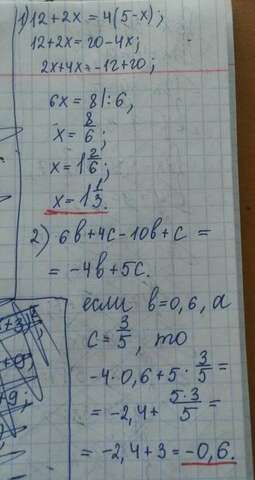 1) 12+2x=4(5-x);
12+2x=20-4x;
2x+4x=-12+20;
6x=8|:6,
x=8/6;
x=1 2/6;
x=1 1/3.
2) 6b+4c-10b+c=
=-4b+5c.
если b=0,6, а
c=3/5, то
-4·0,6+5·3/5=
=-2,4+5·3/5=
=-2,4+3=-0,6.